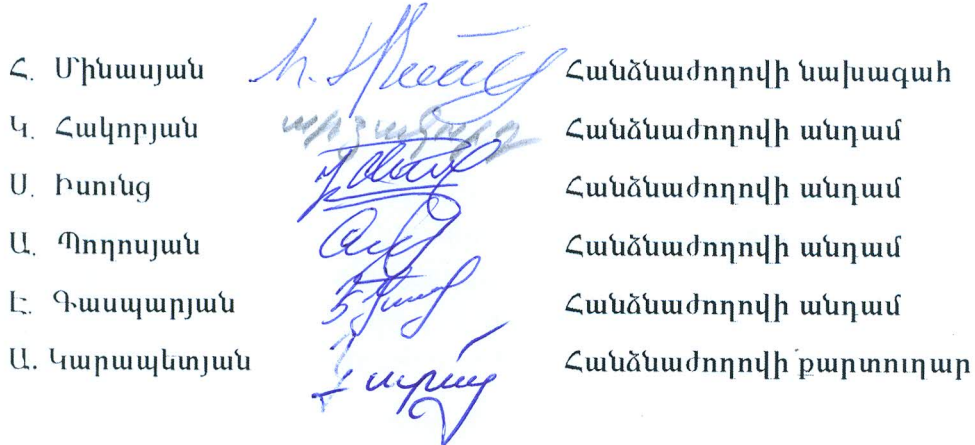 Հ. Մինասյան Հանձնաժողովի նախագահ
Կ. Հակոբյան արձակուրդ Հանձնաժողովի անդամ
Ս. Իսունց Հանձնաժողովի անդամ
Ա. Պողոսյան Հանձնաժողովի անդամ
Է. Գասպարյան Հանձնաժողովի անդամ
Ա. Կարապետյան Հանձնաժողովի քարտուղար